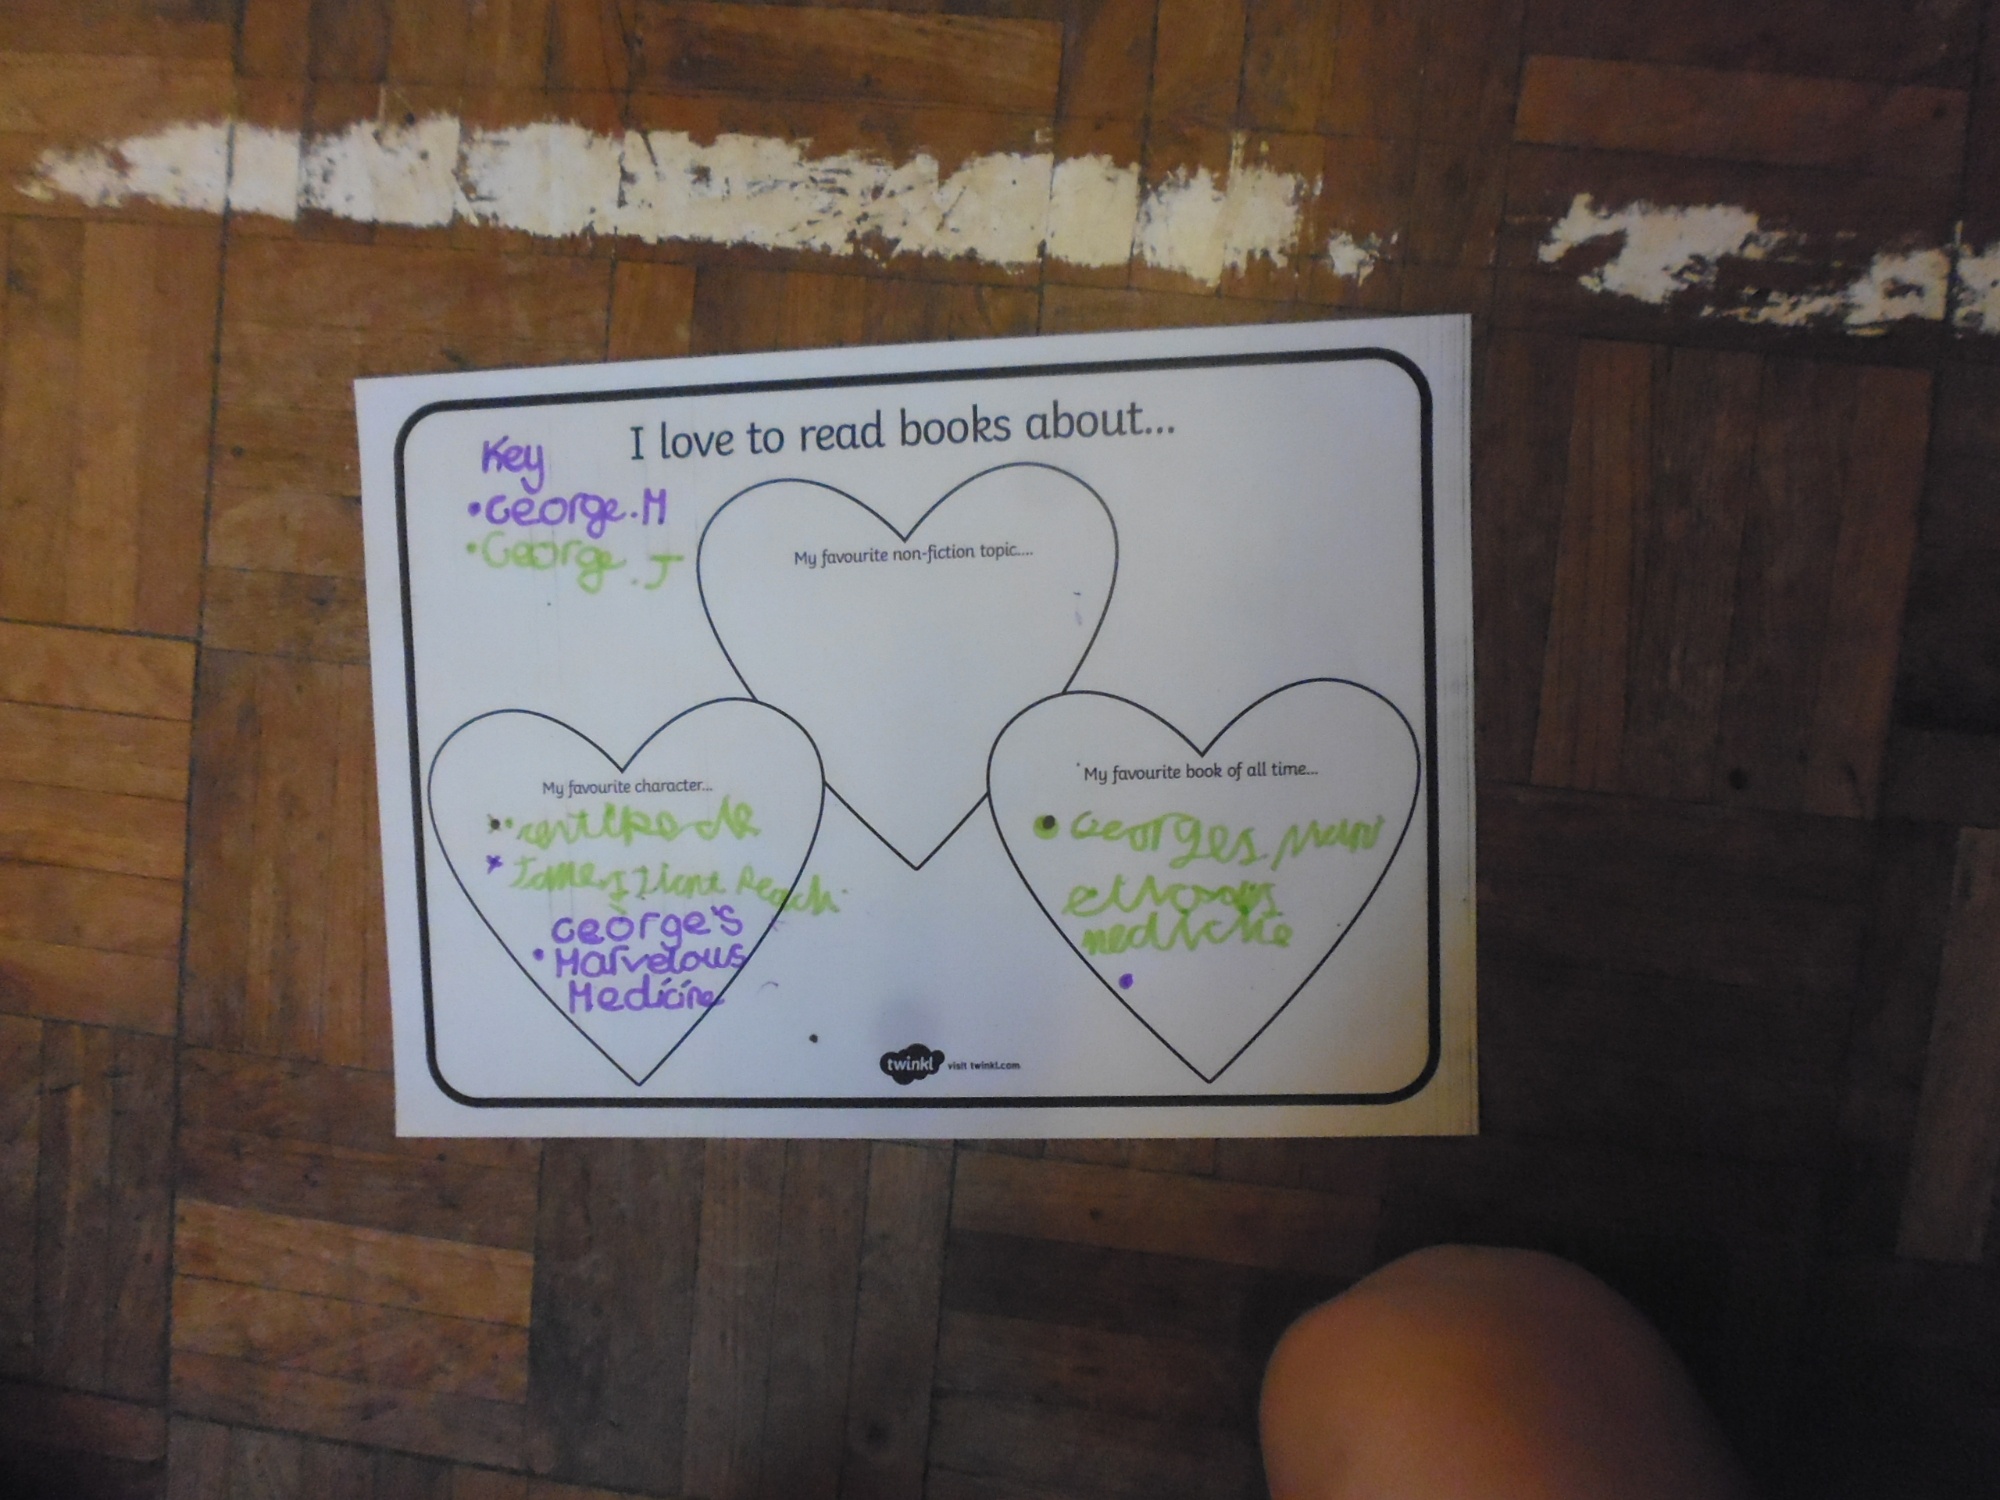 I love to read books about...
Key
•George.M
•George.J
My favourite non-fiction topic....
My favourite character...
James Giant Peach
George's
•Marvelous
Medicine
My favourite book of all time...
Georges
twinkl visit twinkl.com